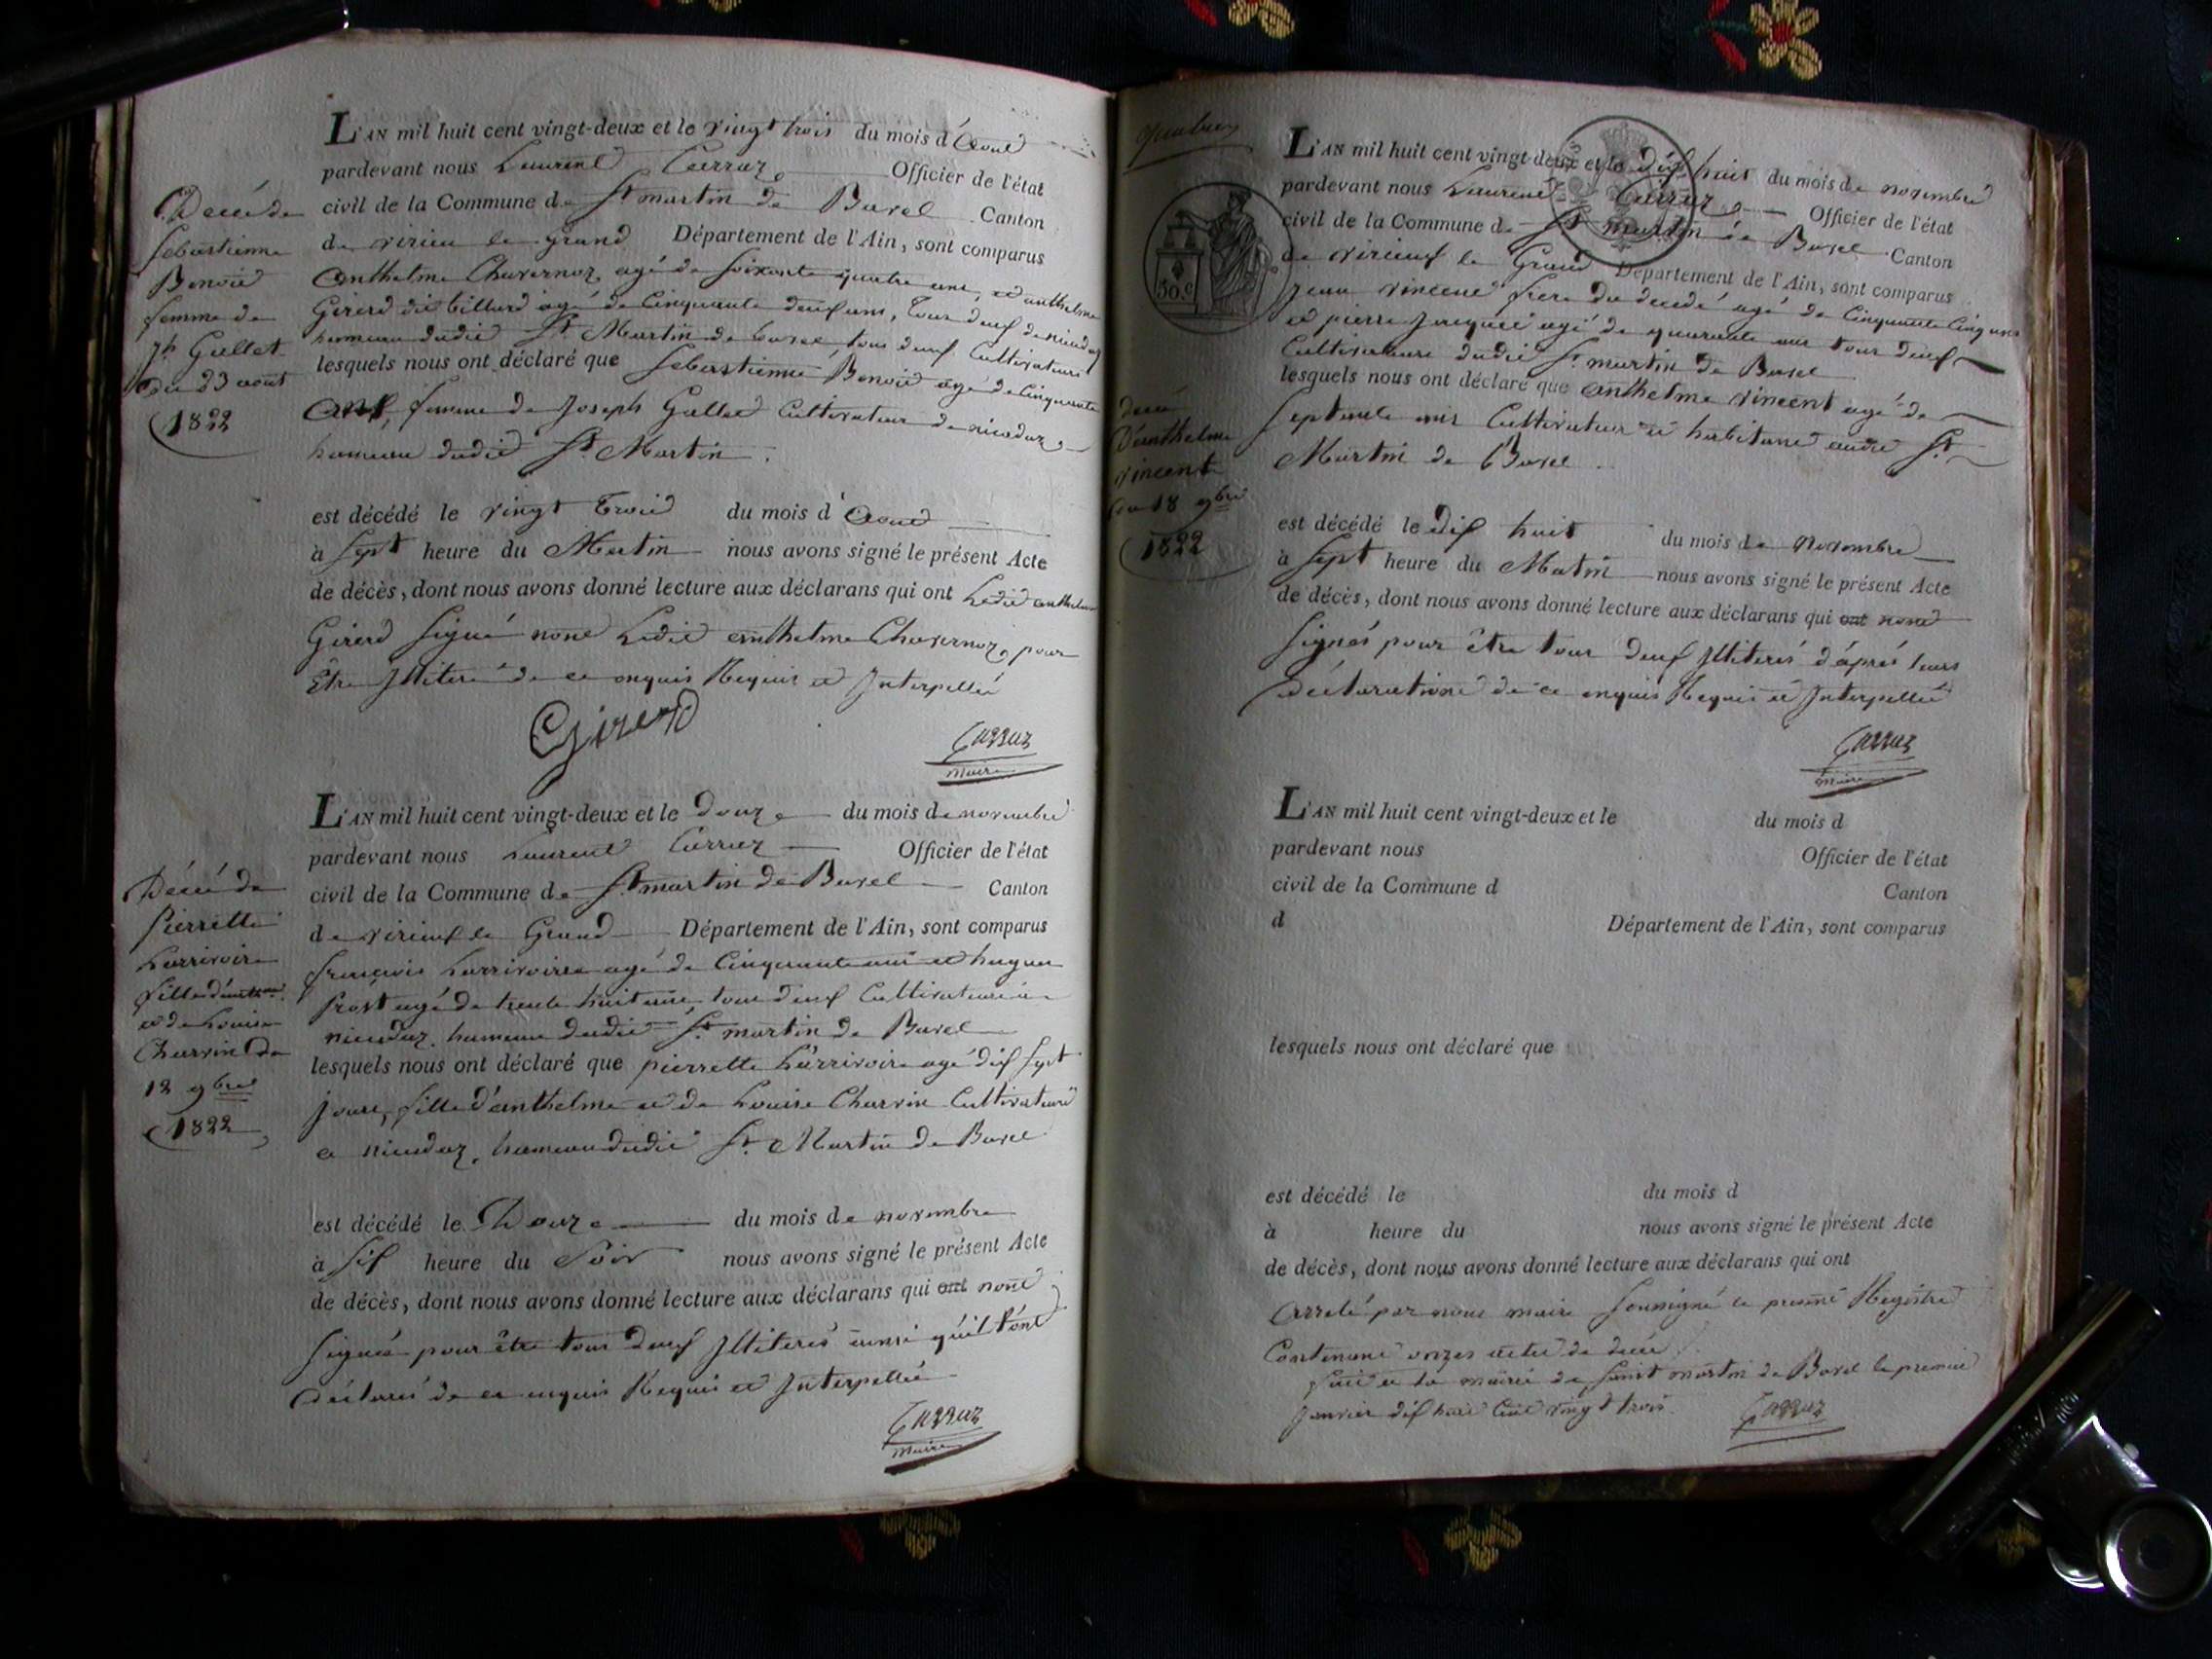 L'AN mil huit cent vingt-deux et le vingt trois du mois d'Aout
pardevant nous Laurent Carraz Officier de l'état
civil de la Commune de St martin de Bavel Canton
de virieu le grand Département de l'Ain, sont comparus
Anthelme Chavernoz agé de soixante quatre ans, et anthelme
Girerd dit billard agé de Cinquante deuf ans, tous deuf de
hameau dudit St Martin de bavel, tous deuf Cultivateurs
lesquels nous ont déclaré que Sebastienne Benoid agé de Cinquante
ans, femme de Joseph Gullet Cultivateur de
hameau dudit St Martin.
est décédé le vingt Trois du mois d'Aout
à Sept heure du Matin nous avons signé le présent Acte
de décès, dont nous avons donné lecture aux déclarans qui ont Ledit anthelme
Girerd signé nont Ledit anthelme Chavernoz, pour
Être Jlliteré de ce enquis Requis et Interpellé
Girerd
Carraz
maire
Decé de
Sebastienne
Benoid
femme de
Jh Gullet
du 23 aout
1822
L'AN mil huit cent vingt-deux et le Douze du mois de novembre
pardevant nous Laurent Carraz Officier de l'état
civil de la Commune de St martin de Bavel Canton
de virieuf le Grand Département de l'Ain, sont comparus
françois Larrivoire agé de Cinquante ans et hugue
prost agé de trente huit ans, tous deuf Cultivateurs à
hameau dudit St martin de Bavel
lesquels nous ont déclaré que pierrette Larrivoire agé dif sept
jours, fille d'anthelme et de Louise Charvin Cultivateurs
a hameau dudit St Martin de Bavel
est décédé le Douze du mois de novembre
à sif heure du Soir nous avons signé le présent Acte
de décès, dont nous avons donné lecture aux déclarans qui ont nont
Signés pour être tous deuf Jlliterés ainsi qu'il l'ont
déclarés de ce enquis Requis et Interpellé
Carraz
maire
Décé de
Pierrette
Larrivoire
fille
et de Louise
Charvin du
12 9bre
1822
L'AN mil huit cent vingt-deux et le dif huit du mois de novembre
pardevant nous Laurent Carraz Officier de l'état
civil de la Commune de St martin de Bavel Canton
de virieuf le Grand Département de l'Ain, sont comparus
Jean vincent frere du decedé agé de Cinquante Cinq ans
et pierre Jacquet agé de quarante ans tous deuf
Cultivateurs dudit St martin de Bavel
lesquels nous ont déclaré que anthelme vincent agé de
Septante ans Cultivateur et habitant audit St
Martin de Bavel
est décédé le dif huit du mois de novembre
à Sept heure du Matin nous avons signé le présent Acte
de décès, dont nous avons donné lecture aux déclarans qui ont nont
Signés pour être tous deuf Jlliterés d'aprés leurs
déclarations de ce enquis Requis et Interpellé
Carraz
maire
50.c
decé
D'anthelme
vincent
du 18 9bre
1822
L'AN mil huit cent vingt-deux et le du mois d
pardevant nous Officier de l'état
civil de la Commune d Canton
d Département de l'Ain, sont comparus
lesquels nous ont déclaré que
est décédé le du mois d
à heure du nous avons signé le présent Acte
de décès, dont nous avons donné lecture aux déclarans qui ont
Arreté par nous maire Soussigné le present Registre
Contenant onzes actes de decé
fait a la mairie de Saint martin de Bavel le premier
Janvier dif huit Cent vingt trois.
Carraz